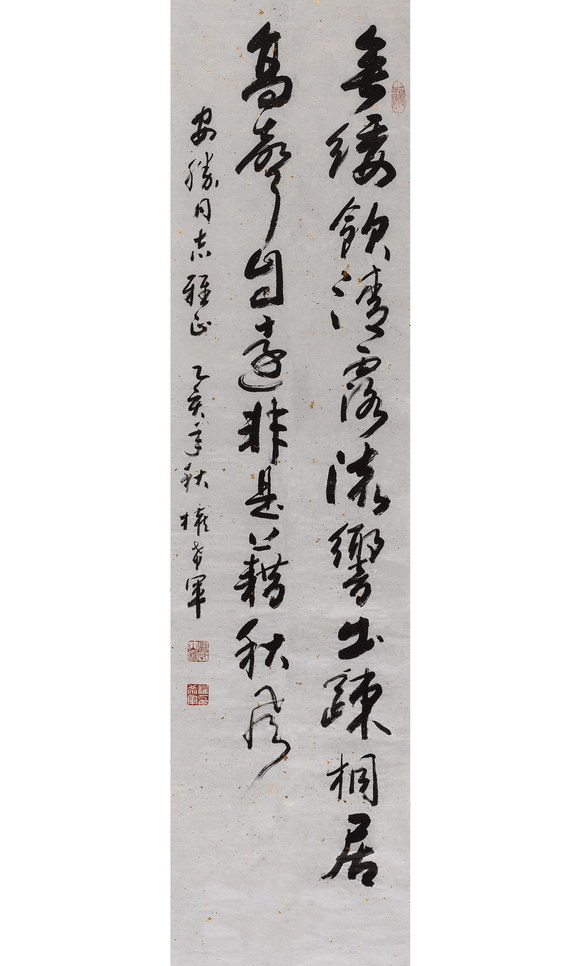 垂緌飲清露流響出疎桐居
高聲自遠非是藉秋風
安勝同志雅正 乙亥年秋 權希軍